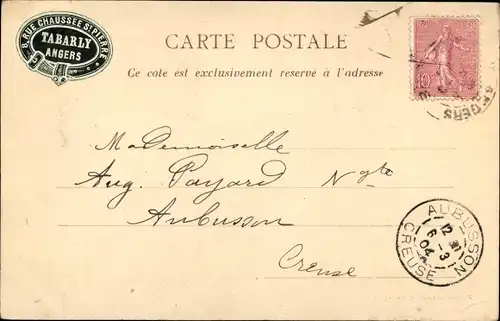 8, RUE CHAUSSÉE ST PIERRE
TABARLY
ANGERS
CARTE POSTALE
Ce côté est exclusivement reservé à l'adresse
10
ANGERS
Mademoiselle
Aug. Payard Ngte
Aubusson
Creuse
AUBUSSON
12
6 -3
04
CREUSE